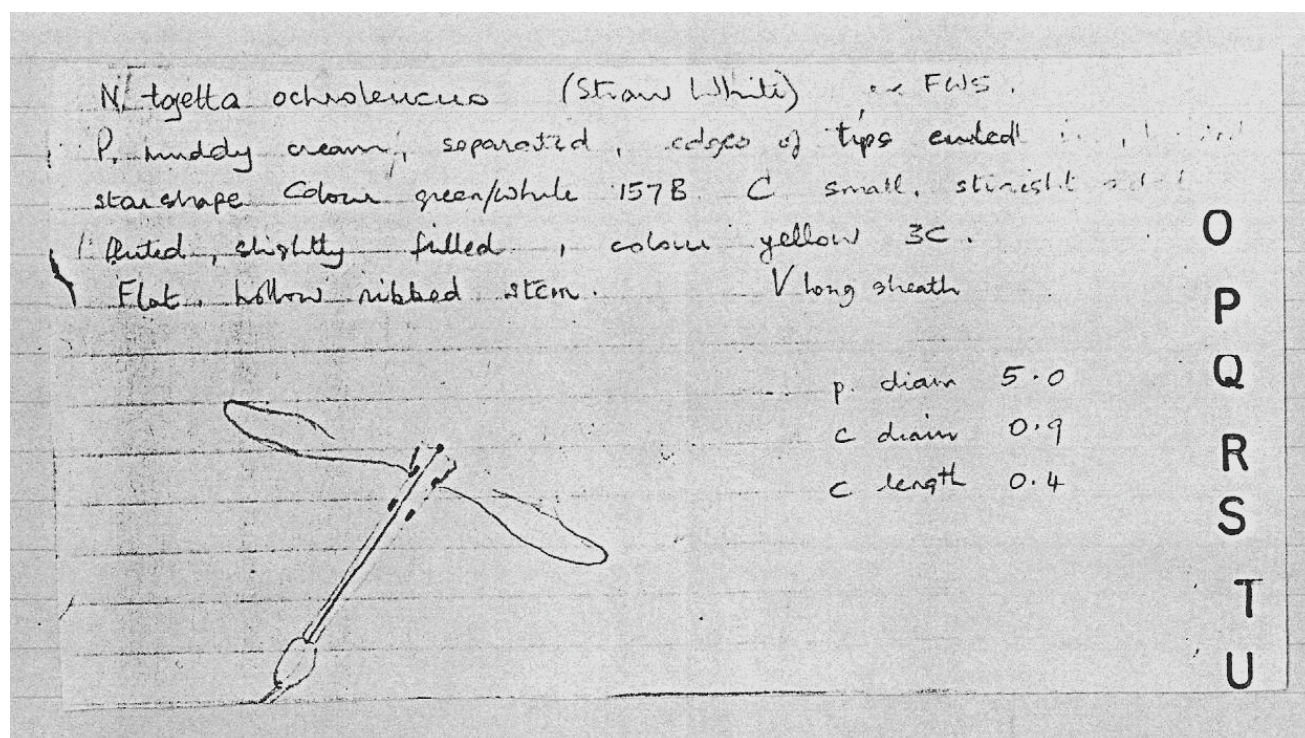 N. tazetta ochroleucus (Straw White) FWS.
P. muddy cream, separated, edges of tips curled
star shape Colour green/white 157B. C small, straight sided
fluted, slightly frilled, colour yellow 3C.
Flat, hollow ribbed stem. V long sheath
p. diam 5.0
c diam 0.9
c length 0.4
O
P
Q
R
S
T
U